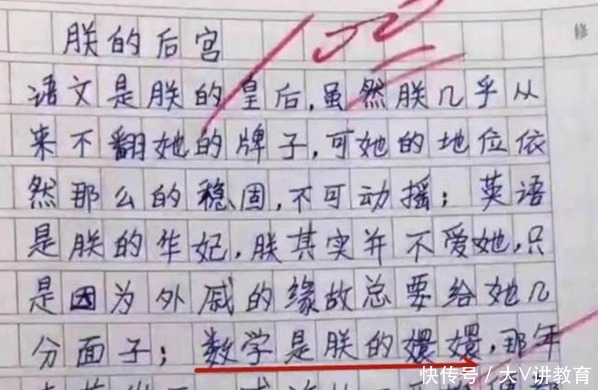 朕的后宫
修
语文是朕的皇后,虽然朕几乎从
来不翻她的牌子,可她的地位依
然那么的稳固,不可动摇;英语
是朕的华妃,朕其实并不爱她,只
是因为外戚的缘故总要给她几
分面子;数学是朕的嬛嬛,那年
快传号/大V讲教育